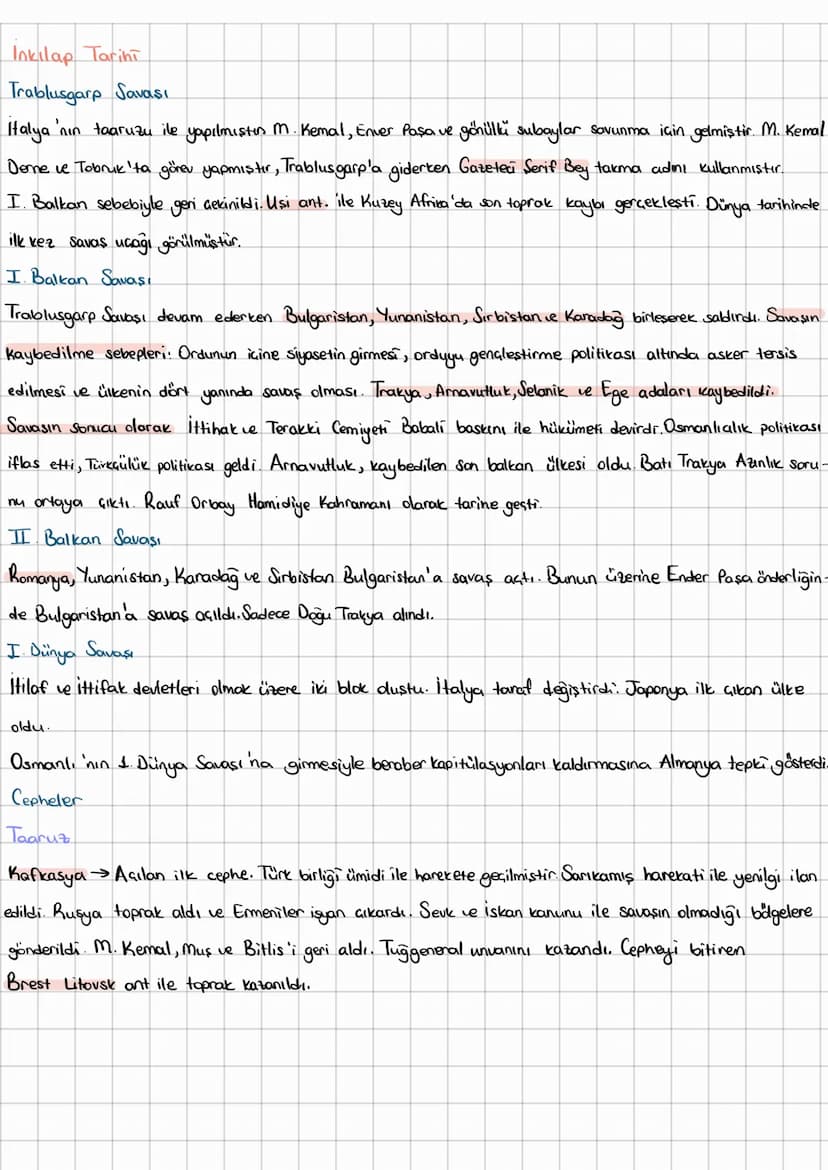 İnkılap Tarihi
Trablusgarp Savası
İtalya'nın taaruzu ile yapılmıstır. M. Kemal, Enver Paşa ve gönüllü subaylar savunma icin gelmiştir. M. Kemal
Derne ve Tobruk'ta görev yapmıstır, Trablusgarp'a giderken Gazeteci Serif Bey takma adını kullanmıstır.
I. Balkan sebebiyle geri cekinildi. Uşi ant. ile Kuzey Afrika'da son toprak kaybı gercekleşti. Dünya tarihinde
ilk kez savas ucağı görülmüştür.
I. Balkan Savası
Trablusgarp Savaşı devam ederken Bulgaristan, Yunanistan, Sırbistan ve Karadağ birleserek saldırdı. Savaşın
kaybedilme sebepleri: Ordunun icine siyasetin girmesi, orduyu gençleştirme politikası altında asker tersis
edilmesi ve ülkenin dört yanında savaş olması. Trakya, Arnavutluk, Selanik ve Ege adaları kaybedildi.
Savasın sonucu olarak İttihat ve Terakki Cemiyeti Babali baskını ile hükümeti devirdi. Osmanlıcalık politikası
iflas etti, Türkçülük politikası geldi. Arnavutluk, kaybedilen son balkan ülkesi oldu. Batı Trakya Azınlık soru-
nu ortaya çıktı. Rauf Orbay Hamidiye Kahramanı olarak tarihe geşti.
II. Balkan Savaşı
Romanya, Yunanistan, Karadağ ve Sırbistan Bulgaristan'a savaş açtı. Bunun üzerine Ender Paşa önderliğin-
de Bulgaristan'a savaş açıldı. Sadece Doğu Trakya alındı.
I. Dünya Savaşı
İtilaf ve ittifak devletleri olmak üzere iki blok oluştu. İtalya taraf değiştirdi. Japonya ilk çıkan ülke
oldu.
Osmanlı'nın 1. Dünya Savası'na girmesiyle beraber kapitülasyonları kaldırmasına Almanya tepki gösterdi.
Cepheler
Taaruz
Kafkasya → Acılan ilk cephe. Türk birliği ümidi ile harekete geçilmistir. Sarıkamış harekati ile yenilgi ilan
edildi. Rusya toprak aldı ve Ermeniler isyan cıkardı. Sevk ve iskan kanunu ile savaşın olmadığı bölgelere
gönderildi. M. Kemal, Muş ve Bitlis'i geri aldı. Tuğgeneral unvanını kazandı. Cepheyi bitiren
Brest Litovsk ant ile toprak kazanıldı.